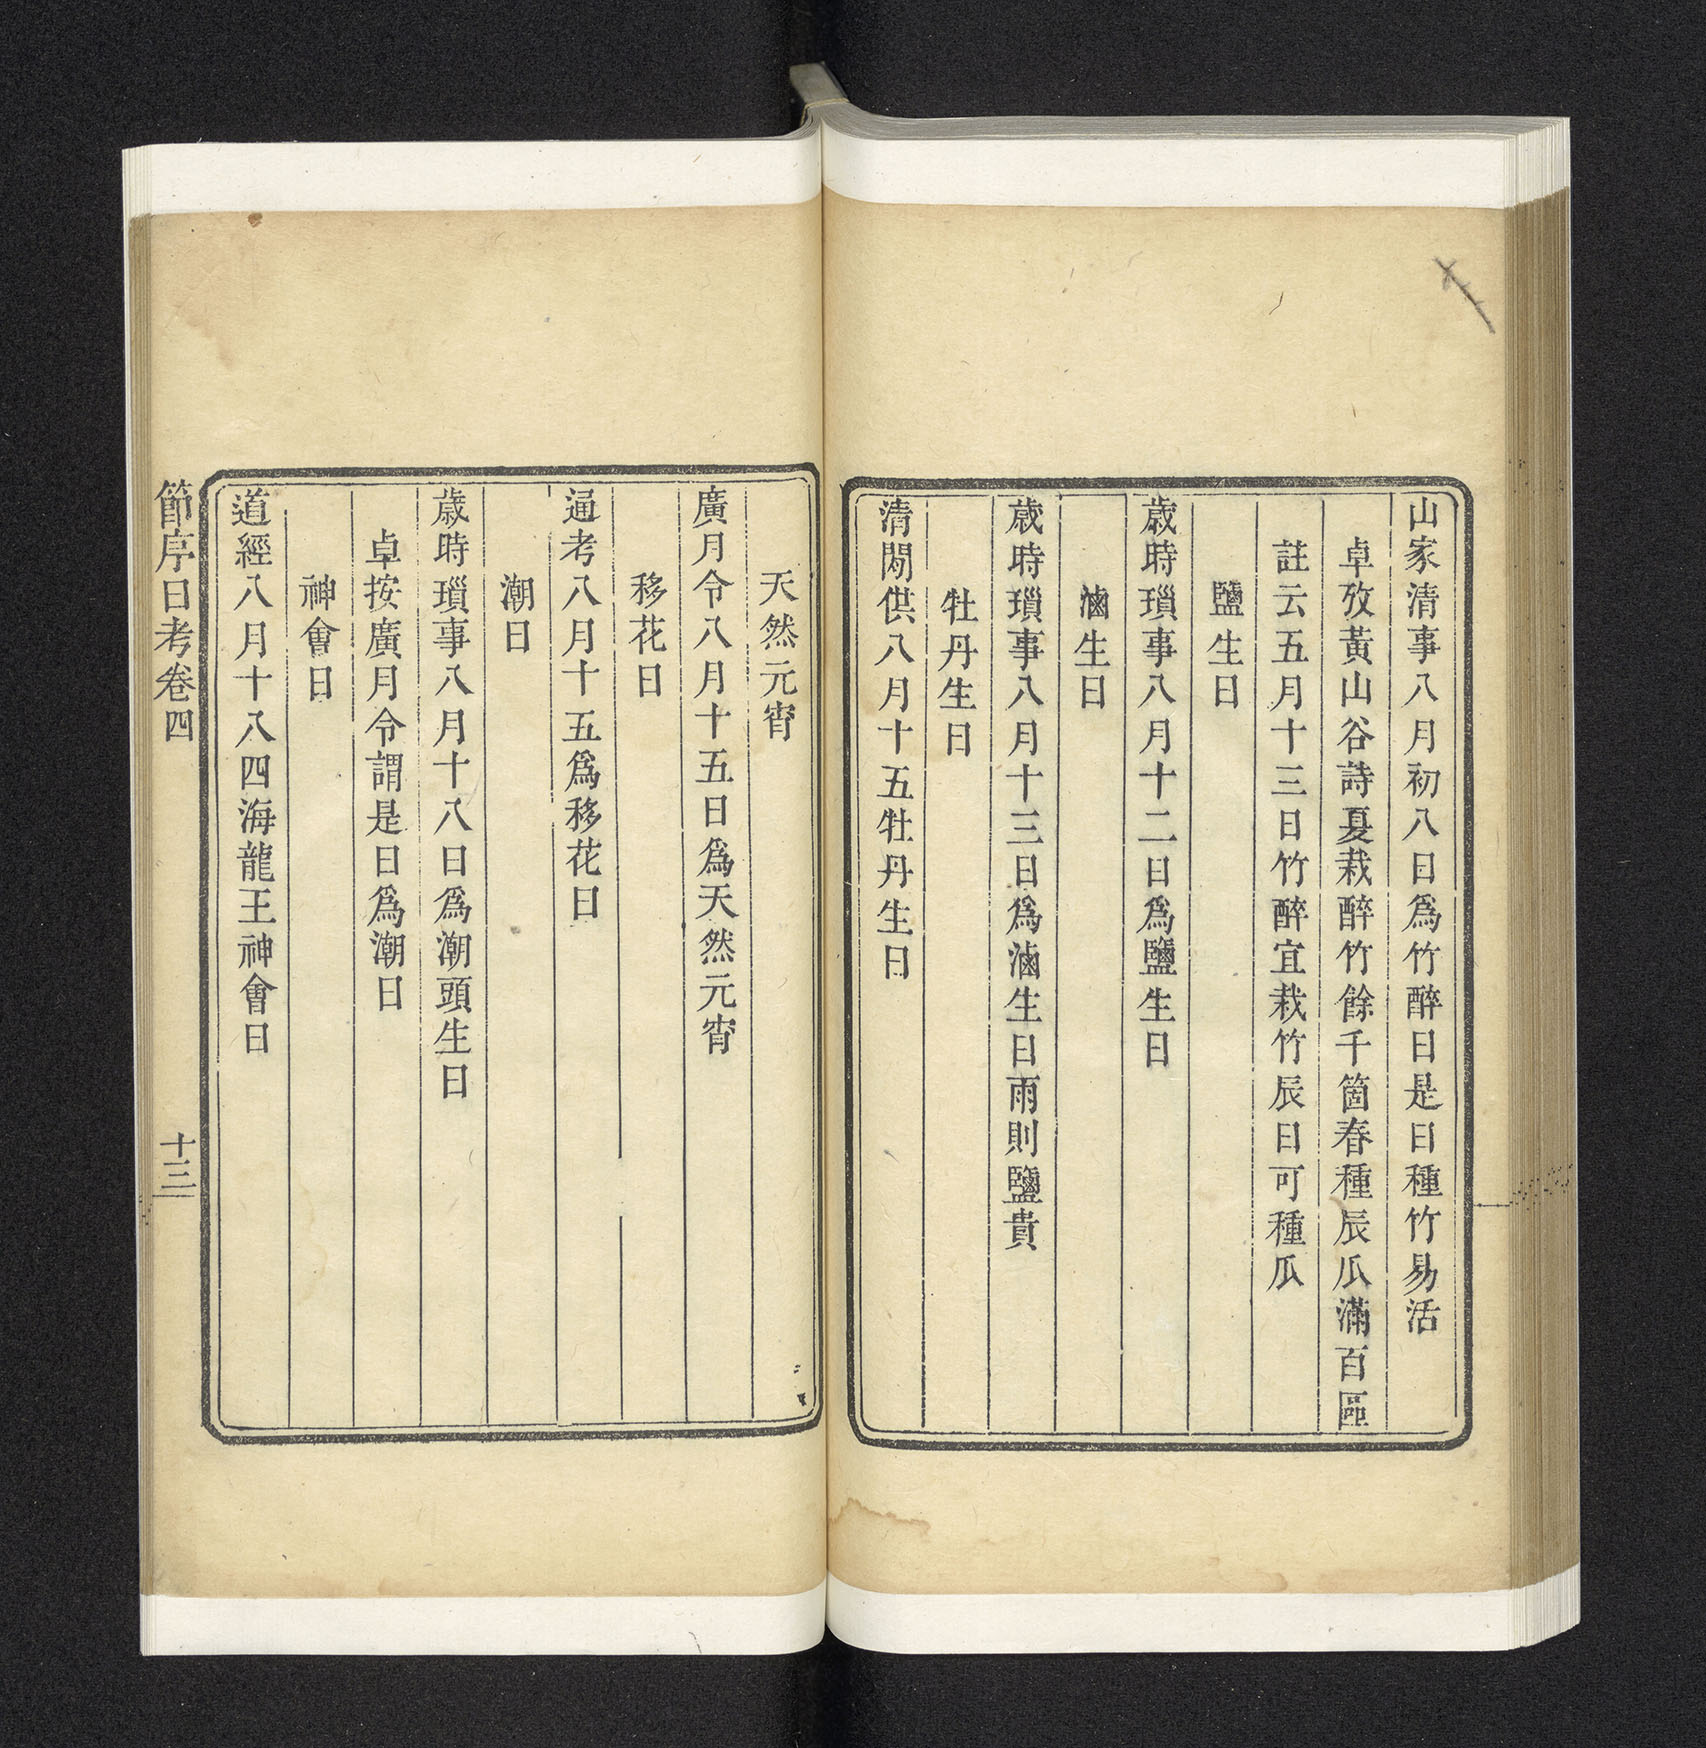 山家清事八月初八日爲竹醉日是日種竹易活
卓攷黃山谷詩夏栽醉竹餘千箇春種辰瓜滿百區
註云五月十三日竹醉宜栽竹辰日可種瓜
鹽生日
歲時瑣事八月十二日爲鹽生日
滷生日
歲時瑣事八月十三日爲滷生日雨則鹽貴
牡丹生日
清閒供八月十五牡丹生日
天然元宵
廣月令八月十五日爲天然元宵
移花日
通考八月十五爲移花日
潮日
歲時瑣事八月十八日爲潮頭生日
卓按廣月令謂是日爲潮日
神會日
道經八月十八四海龍王神會日
節序日考卷四
十三